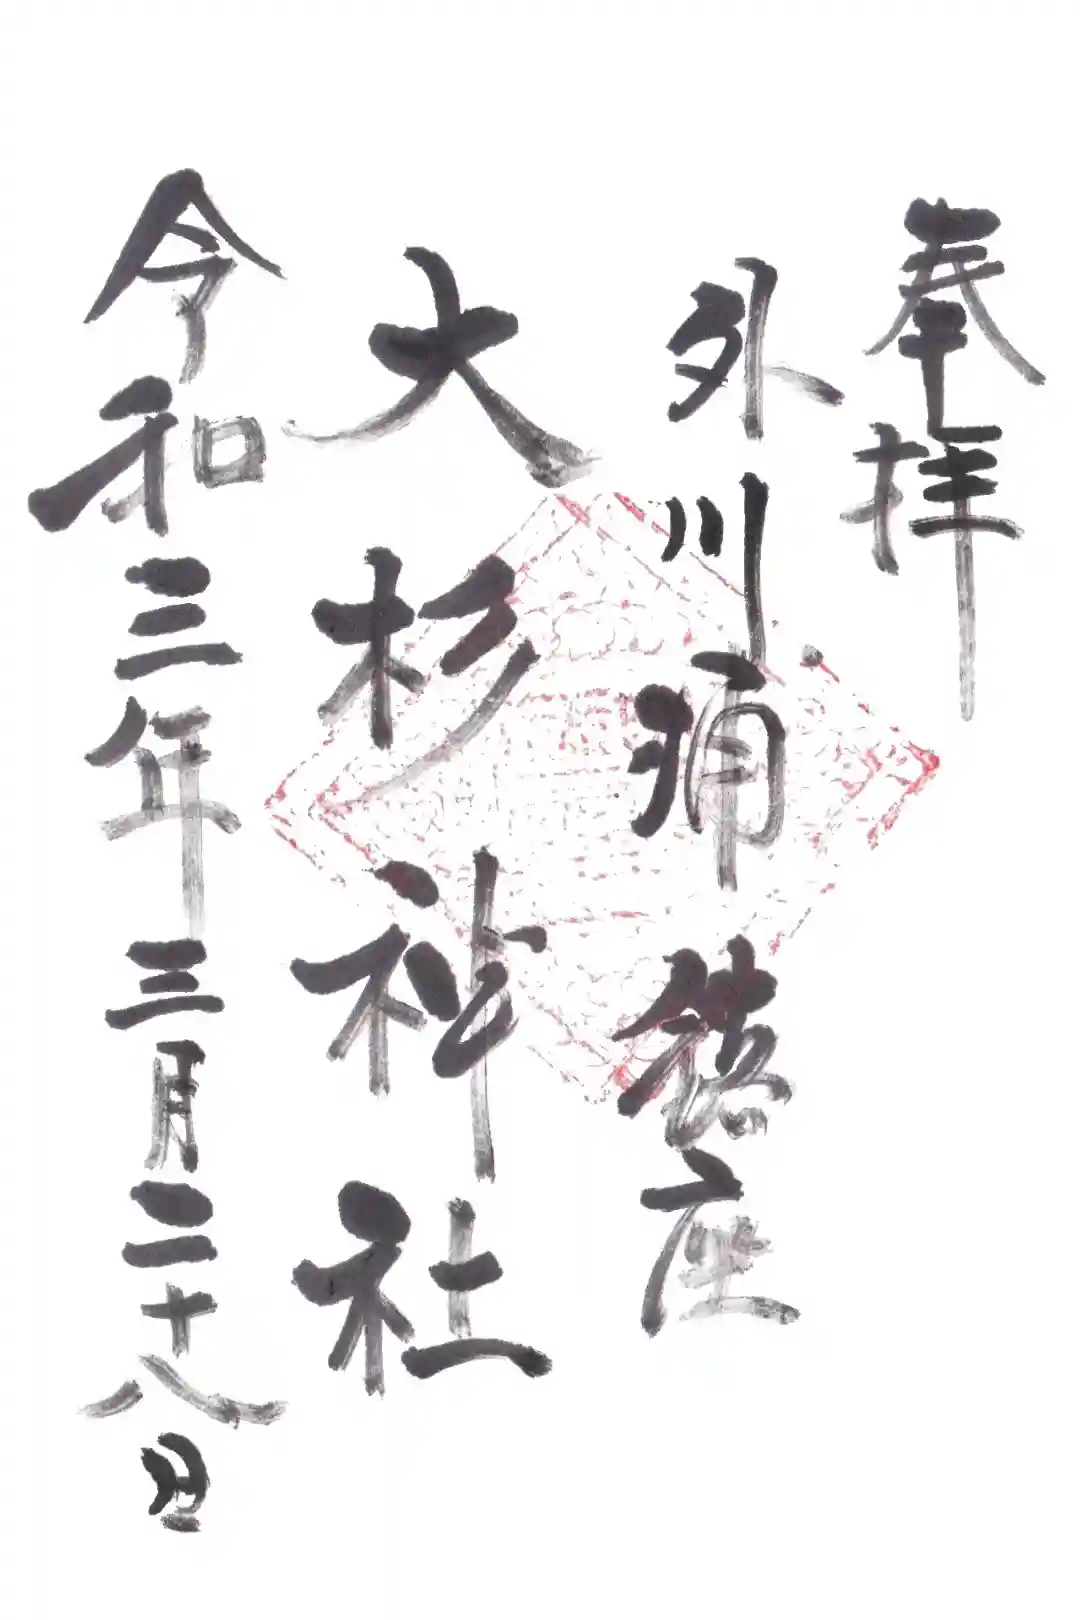 奉拝
外川浦鎮座
大杉神社
令和三年三月二十八日